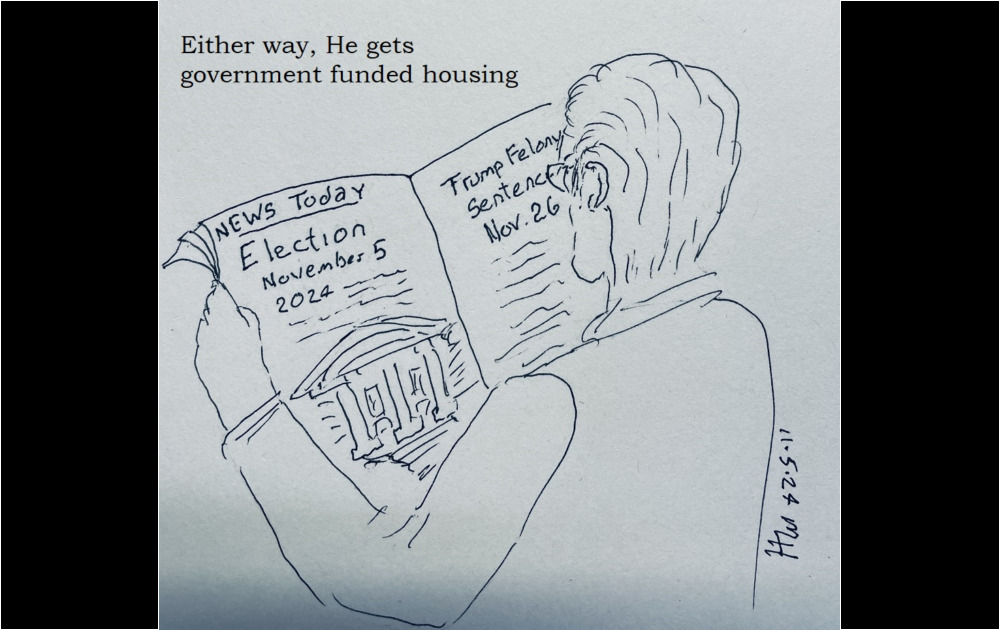 Either way, He gets
government funded housing
NEWS Today
Election
November 5
2024
Trump Felony
Sentence
Nov. 26
HW 11.5.24